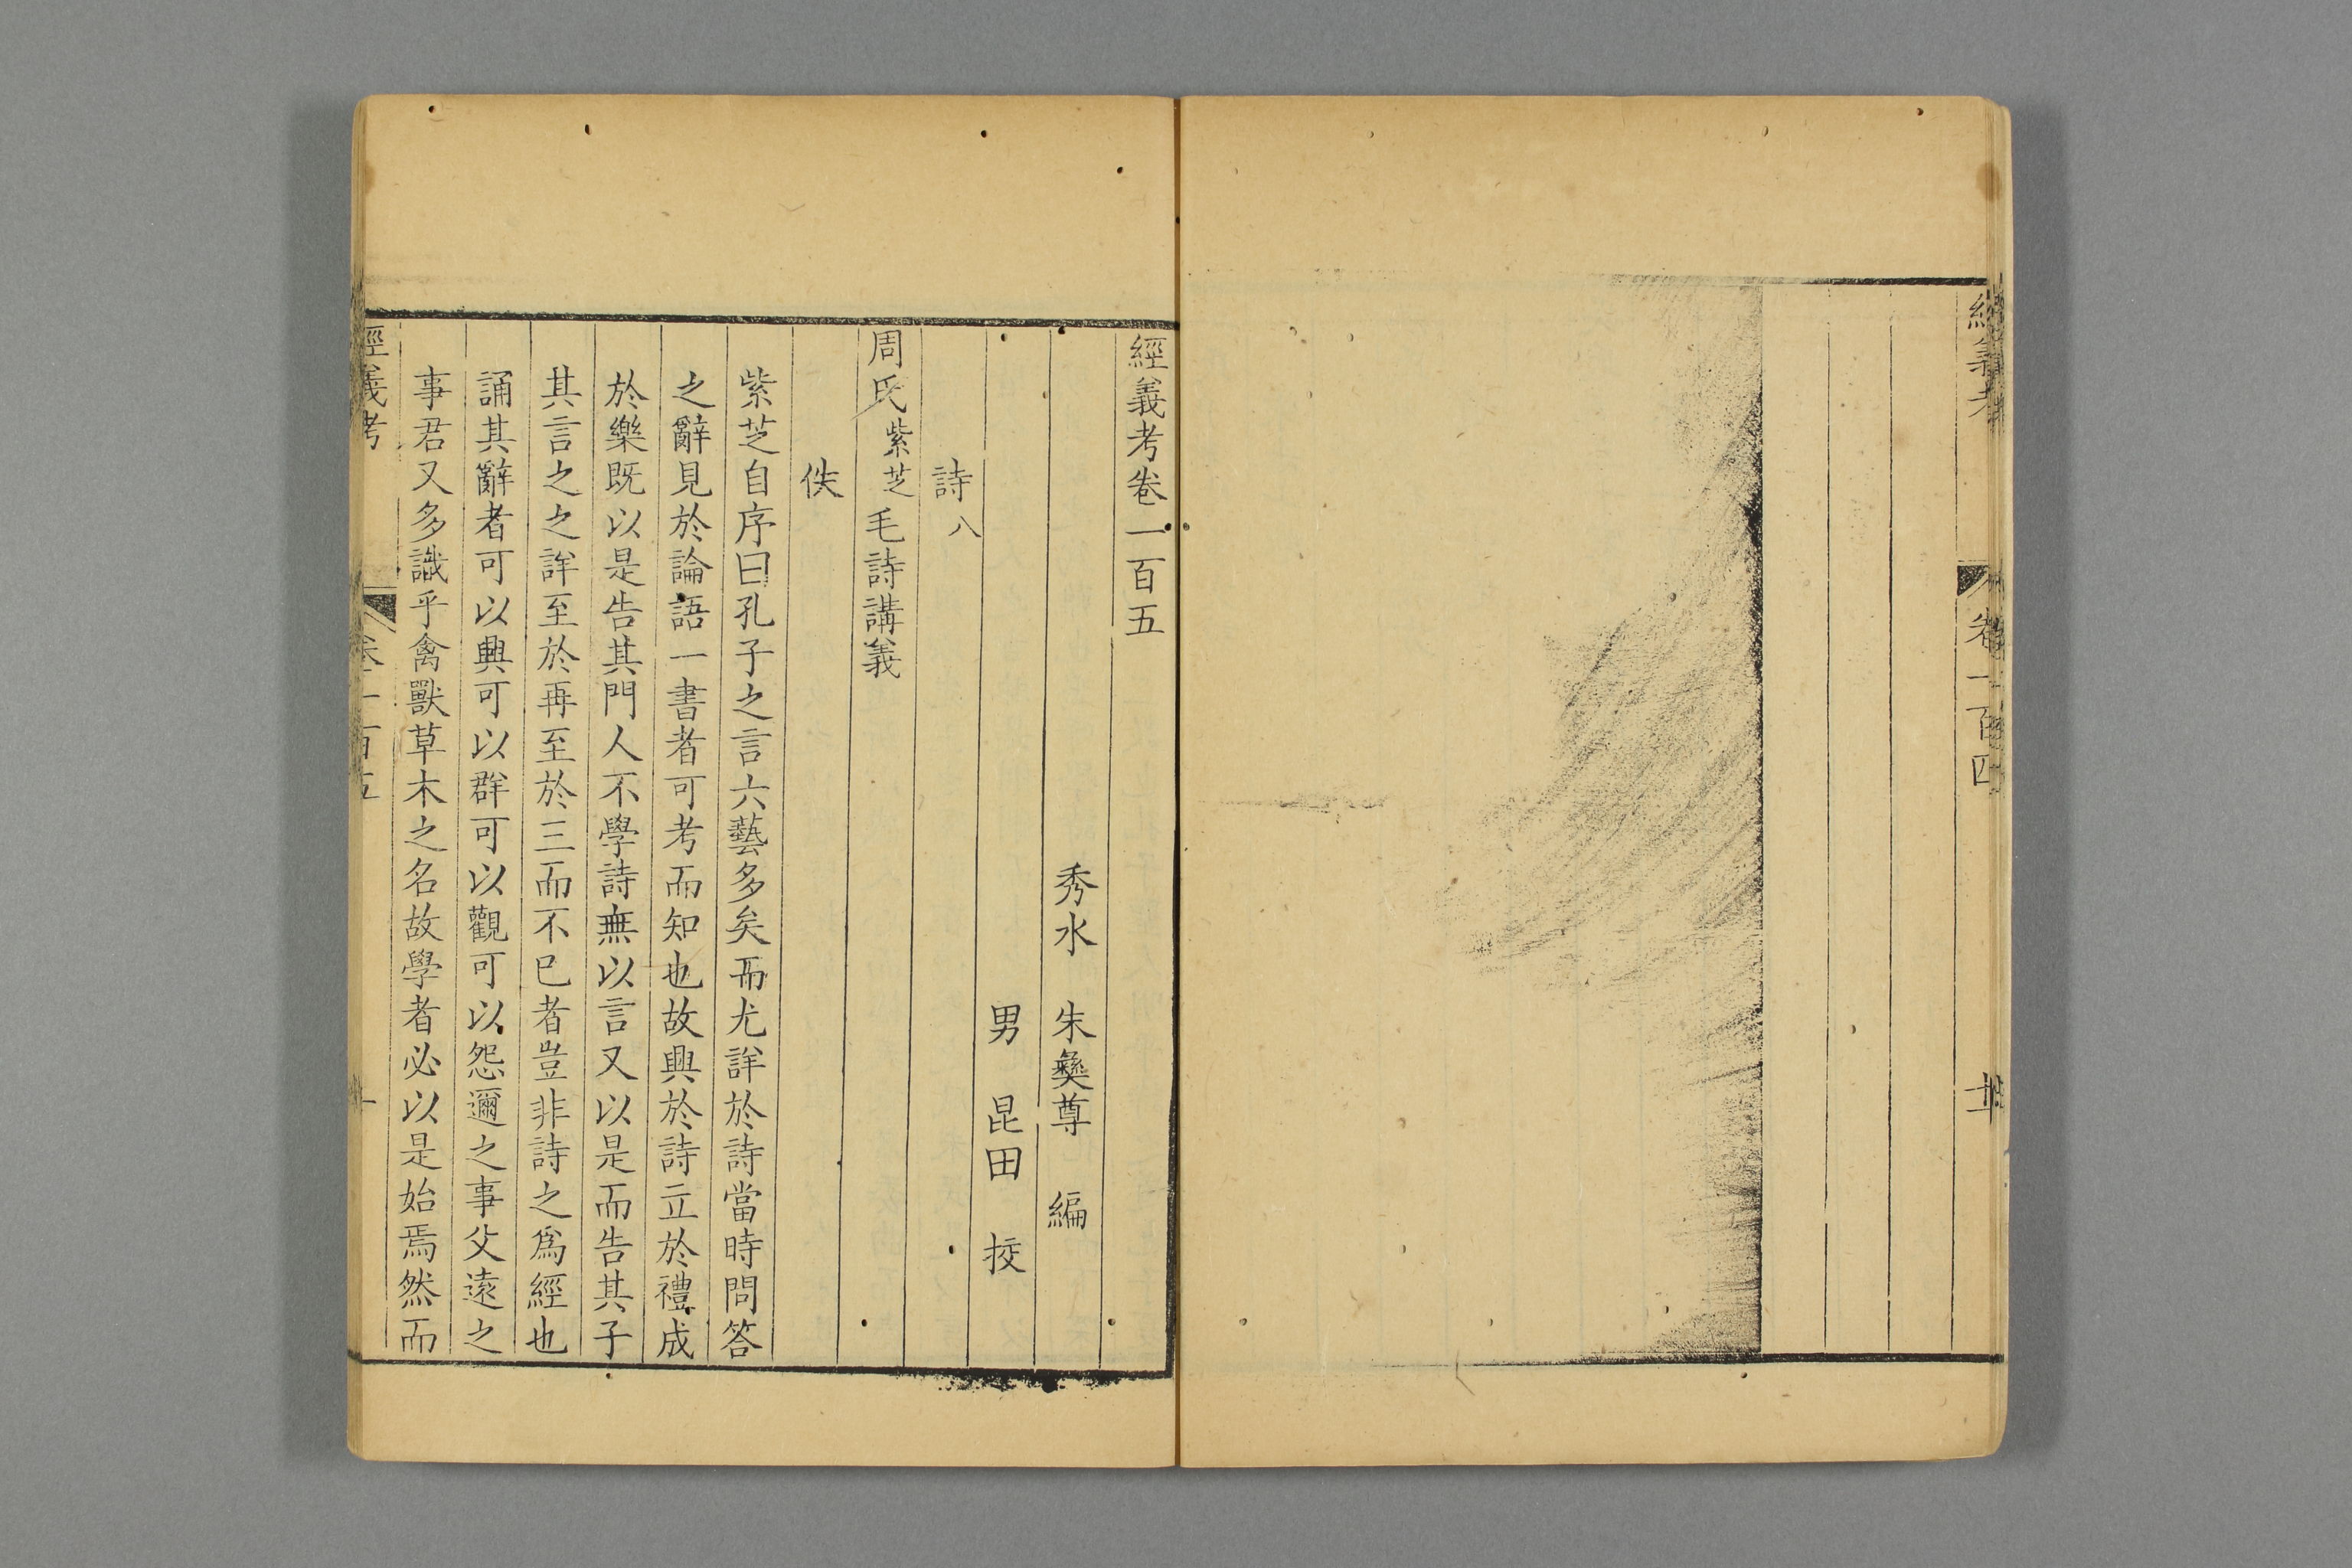 經義考
卷一百四
經義考卷一百五
秀水 朱彝尊 編
男 昆田 挍
詩八
周氏紫芝毛詩講義
佚
紫芝自序曰孔子之言六藝多矣而尤詳於詩當時問答
之辭見於論語一書者可考而知也故興於詩立於禮成
於樂既以是告其門人不學詩無以言又以是而告其子
其言之之詳至於再至於三而不已者豈非詩之爲經也
誦其辭者可以興可以群可以觀可以怨邇之事父遠之
事君又多識乎禽獸草木之名故學者必以是始焉然而
經義考
卷一百五
一